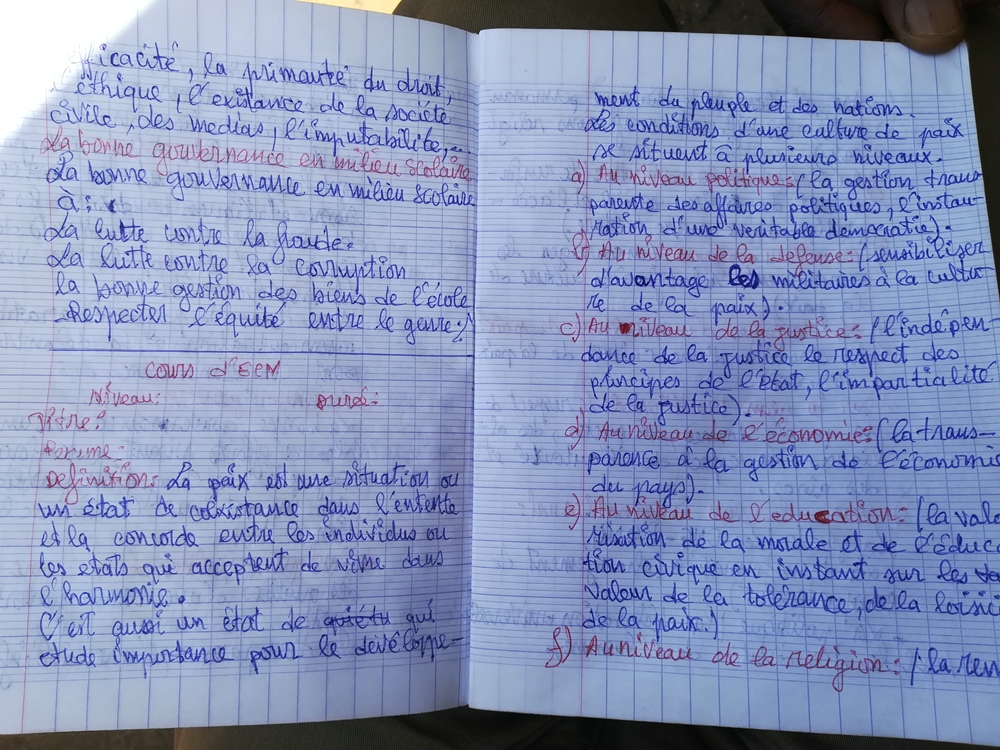 icacité, la primauté du droit,
éthique, l'existance de la société
civile, des medias, l'imputabilité,..
La bonne gouvernance en milieu scolaire
La bonne gouvernance en milieu scolaire
à :
La lutte contre la fraude.
La lutte contre la corruption
la bonne gestion des biens de l'école
- Respecter l'équité entre le genre :
cours d'ECM
Niveau: Durée:
Titre:
Définition: La paix est une situation ou
un état de coéxistance dans l'entente
et la concorde entre les individus ou
les états qui acceptent de vivre dans
l'harmonie.
C'est aussi un état de quiétu qui
etude importance pour le dévélope-
ment du pleuple et des nations.
Les conditions d'une culture de paix
se situent à plusieurs niveaux.
a) Au niveau politique: (la gestion trans-
parente des affaires politiques, l'instau-
ration d'une veritable democratie).
b) Au niveau de la defense: (sensibiliser
d'avantage les militaires à la cultu-
re de la paix).
c) Au niveau de la justice: (l'indépen-
dance de la justice le respect des
principes de l'état, l'impartialité
de la justice).
d) Au niveau de l'économie: (la trans-
parence à la gestion de l'économie
du pays).
e) Au niveau de l'education: (la valo
risation de la morale et de l'éduca
tion civique en instant sur les
valeur de la tolérance, de la
de la paix.)
f) Au niveau de la religion: (la ren